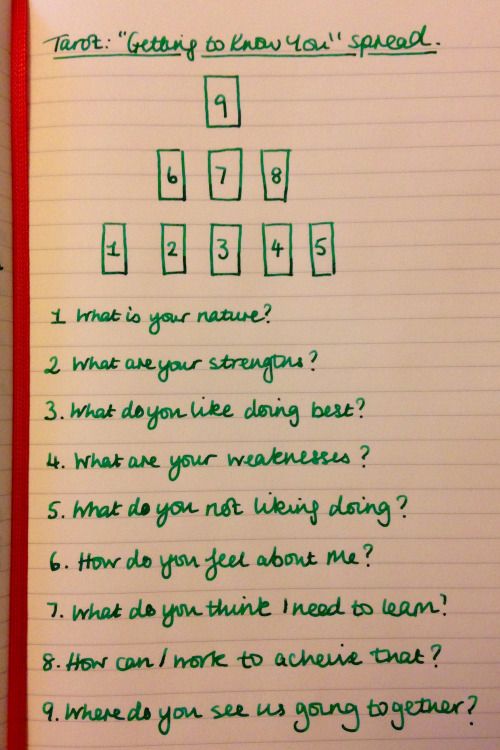 Tarot: "Getting to Know You" spread.
9
6 7 8
1 2 3 4 5
1 What is your nature?
2 What are your strengths?
3. What do you like doing best?
4. What are your weaknesses?
5. What do you not liking doing?
6. How do you feel about me?
7. What do you think I need to learn?
8. How can I work to acheive that?
9. Where do you see us going together?